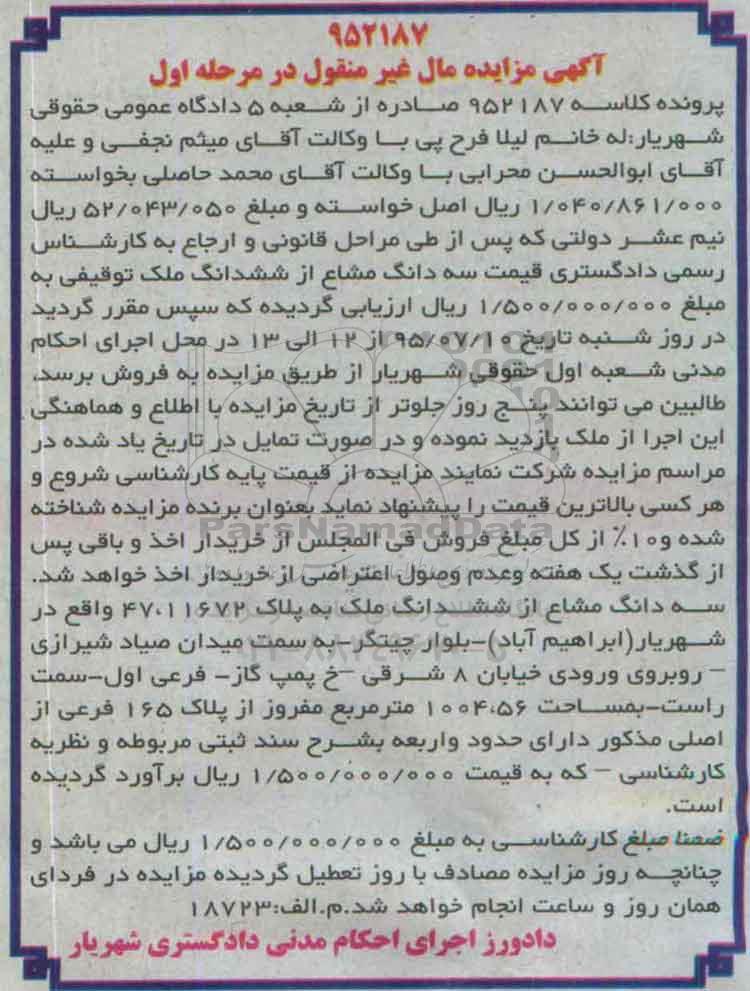 ۹۵۲۱۸۷
آگهی مزایده مال غیر منقول در مرحله اول
پرونده کلاسه ۹۵۲۱۸۷ صادره از شعبه ۵ دادگاه عمومی حقوقی
شهریار:له خانم لیلا فرح پی با وکالت آقای میثم نجفی و علیه
آقای ابوالحسن محرابی با وکالت آقای محمد حاصلی بخواسته
۱/۰۴۰/۸۶۱/۰۰۰ ریال اصل خواسته و مبلغ ۵۲/۰۴۳/۰۵۰ ریال
نیم عشر دولتی که پس از طی مراحل قانونی و ارجاع به کارشناس
رسمی دادگستری قیمت سه دانگ مشاع از ششدانگ ملک توقیفی به
مبلغ ۱/۵۰۰/۰۰۰/۰۰۰ ریال ارزیابی گردیده که سپس مقرر گردید
در روز شنبه تاریخ ۹۵/۰۷/۱۰ از ۱۲ الی ۱۳ در محل اجرای احکام
مدنی شعبه اول حقوقی شهریار از طریق مزایده به فروش برسد.
طالبین می توانند پنج روز جلوتر از تاریخ مزایده با اطلاع و هماهنگی
این اجرا از ملک بازدید نموده و در صورت تمایل در تاریخ یاد شده در
مراسم مزایده شرکت نمایند مزایده از قیمت پایه کارشناسی شروع و
هر کسی بالاترین قیمت را پیشنهاد نماید بعنوان برنده مزایده شناخته
ParsNamadData
شده و۱۰٪ از کل مبلغ فروش فی المجلس از خریدار اخذ و باقی پس
از گذشت یک هفته وعدم وصول اعتراضی از خریدار اخذ خواهد شد.
سه دانگ مشاع از ششدانگ ملک به پلاک ۴۷،۱۱۶۷۲ واقع در
شهریار(ابراهیم آباد)-بلوار چیتگر-به سمت میدان صیاد شیرازی
– روبروی ورودی خیابان ۸ شرقی –خ پمپ گاز- فرعی اول-سمت
راست-بمساحت ۱۰۰۴،۵۶ مترمربع مفروز از پلاک ۱۶۵ فرعی از
اصلی مذکور دارای حدود واربعه بشرح سند ثبتی مربوطه و نظریه
کارشناسی – که به قیمت ۱/۵۰۰/۰۰۰/۰۰۰ ریال برآورد گردیده
است.
ضمنا مبلغ کارشناسی به مبلغ ۱/۵۰۰/۰۰۰/۰۰۰ ریال می باشد و
چنانچه روز مزایده مصادف با روز تعطیل گردیده مزایده در فردای
همان روز و ساعت انجام خواهد شد.م.الف:۱۸۷۲۳
دادورز اجرای احکام مدنی دادگستری شهریار